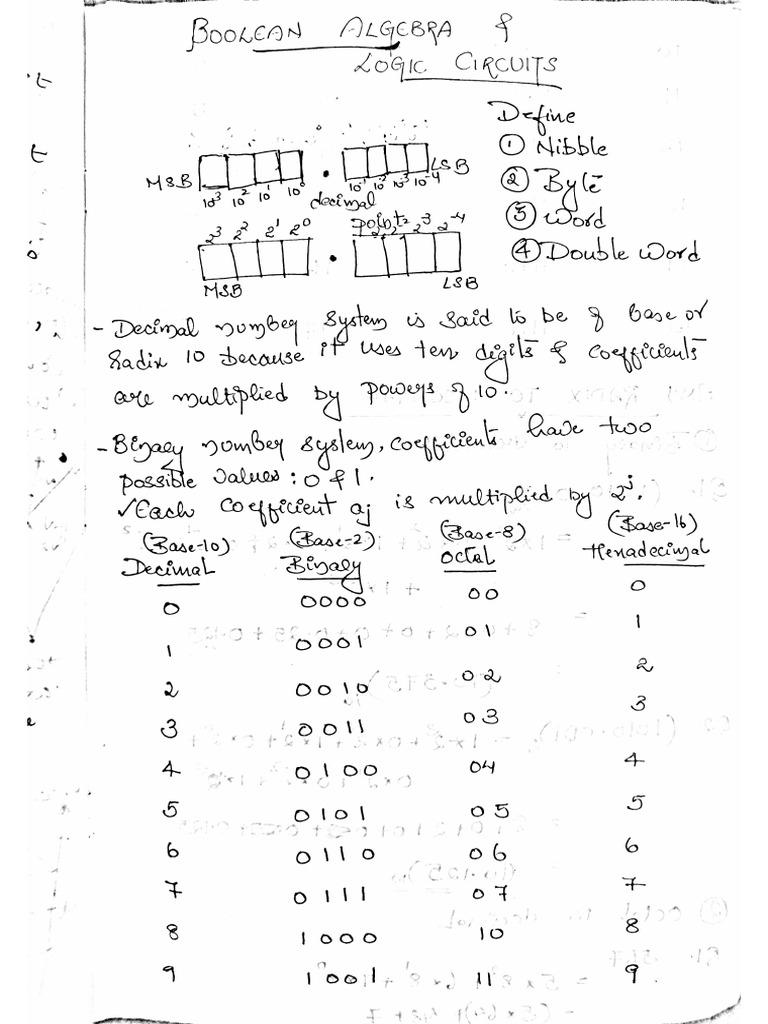 BOOLEAN ALGEBRA &
LOGIC CIRCUITS
Define
① Nibble
② Byte
③ Word
④ Double Word
MSB . LSB
10³ 10² 10¹ 10⁰ 10⁻¹ 10⁻² 10⁻³ 10⁻⁴
decimal
point
2³ 2² 2¹ 2⁰ . 2⁻³ 2⁻⁴
MSB LSB
- Decimal number system is said to be of base or
radix 10 because it uses ten digits & coefficients
are multiplied by powers of 10.
- Binary number system, coefficients have two
possible values : 0 & 1.
✓ Each coefficient aj is multiplied by 2ʲ.
(Base-10) (Base-2) (Base-8) (Base-16)
Decimal Binary Octal Hexadecimal
0 0000 00 0
1 0001 01 1
2 0010 02 2
3 0011 03 3
4 0100 04 4
5 0101 05 5
6 0110 06 6
7 0111 07 7
8 1000 10 8
9 1001 11 9